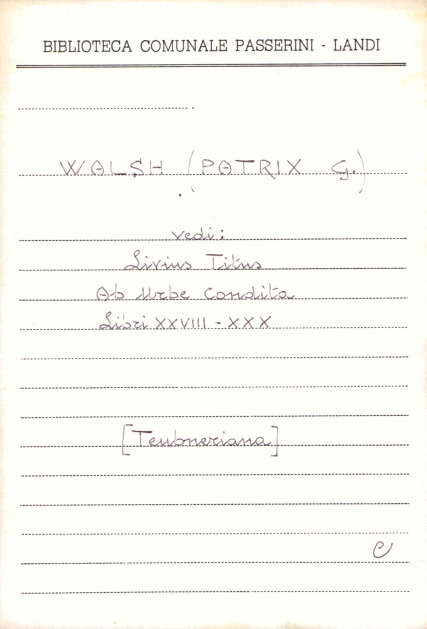 BIBLIOTECA COMUNALE PASSERINI - LANDI
WALSH (PATRIX G.)
vedi:
Livius Titus
Ab Urbe Condita
Libri XXVIII - XXX
[Teubneriana]
C